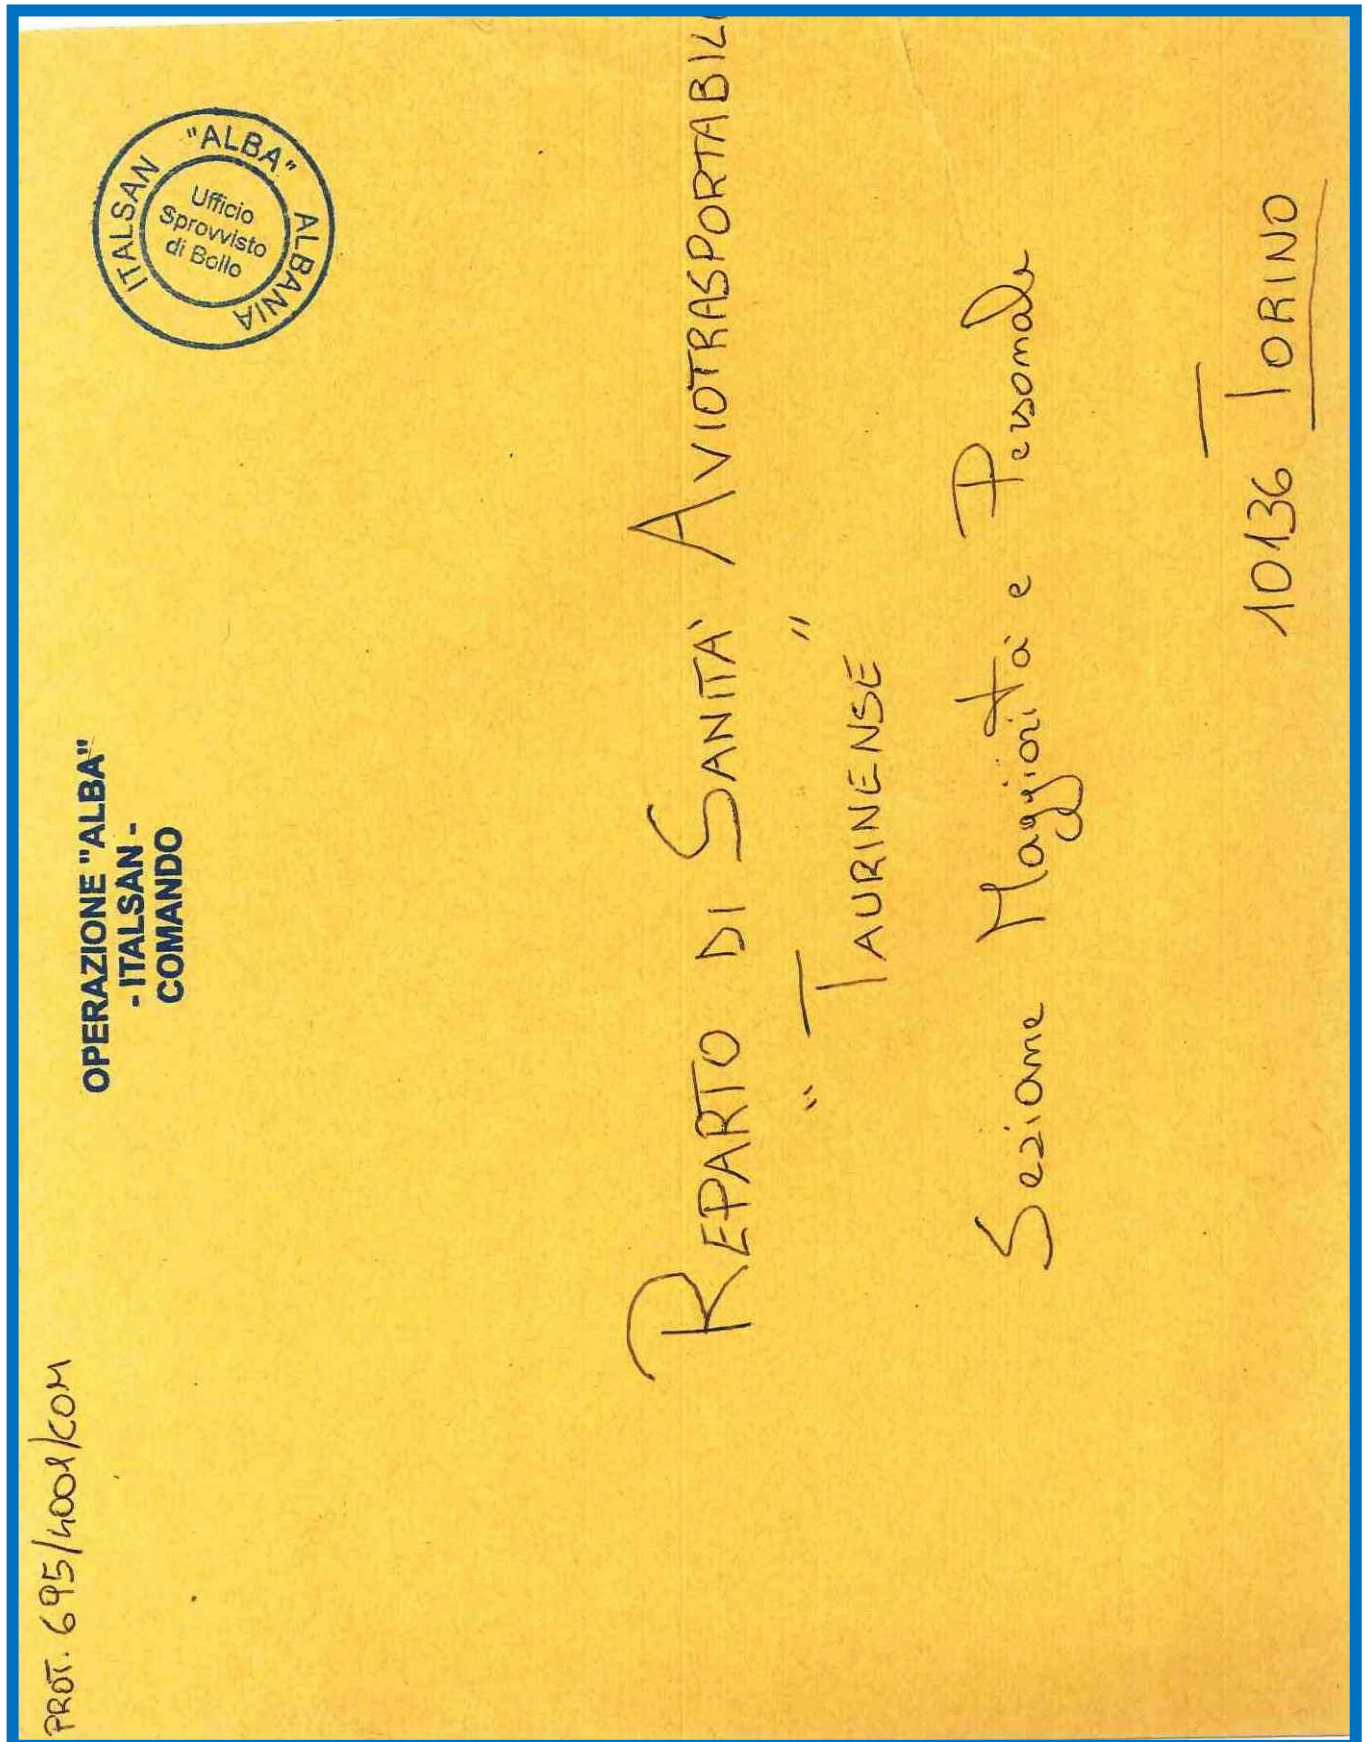 PROT. 695/4001/COM
OPERAZIONE "ALBA"
- ITALSAN -
COMANDO
ITALSAN "ALBA" ALBANIA
Ufficio
Sprovvisto
di Bollo
REPARTO DI SANITA' AVIOTRASPORTABIL
" TAURINENSE "
Sezione Maggiorità e Personale
10136 TORINO